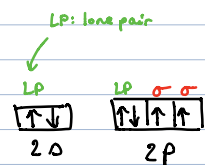 LP: lone pair
LP LP σ σ
↑↓ ↑↓ ↑ ↑
2s 2p